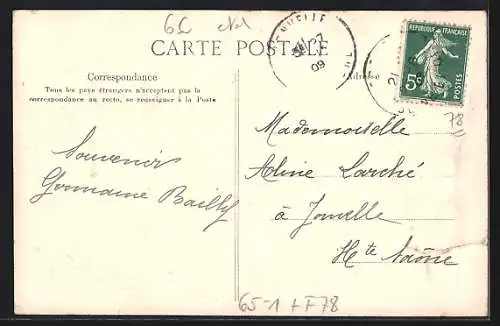 CARTE POSTALE
Correspondance
Tous les pays étrangers n'acceptent pas la
correspondance au recto, se renseigner à la Poste
Souvenir
Germaine Bailly
RÉPUBLIQUE FRANÇAISE
5c
POSTES
27
09
21
Adresse
78
Mademoiselle
Aline Larché
à Jonvelle
Hte Saône
65-1 + F78